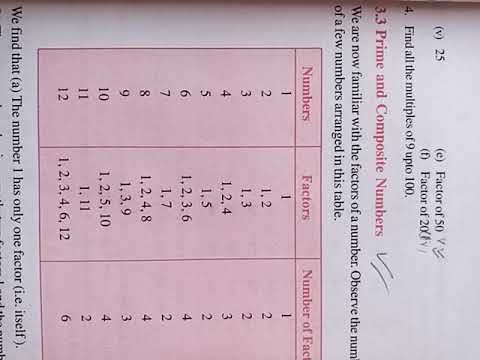 (v) 25
(e) Factor of 50
(f) Factor of 20
4. Find all the multiples of 9 upto 100.
3.3 Prime and Composite Numbers
We are now familiar with the factors of a number. Observe the
of a few numbers arranged in this table.
Numbers Factors Number of
1 1 1
2 1, 2 2
3 1, 3 2
4 1, 2, 4 3
5 1, 5 2
6 1, 2, 3, 6 4
7 1, 7 2
8 1, 2, 4, 8 4
9 1, 3, 9 3
10 1, 2, 5, 10 4
11 1, 11 2
12 1, 2, 3, 4, 6, 12 6
We find that (a) The number 1 has only one factor (i.e. itself ).